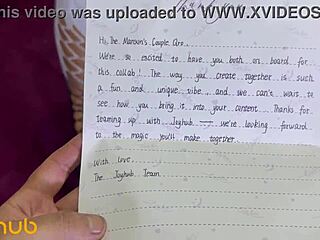 his video was uploaded to WWW.XVIDEOS
Hi The Maroun's Couple Are,
We're so excited to have you both on board for
this collab! The way you create together is such
a fun and unique vibe, and we can't wait to
see how you bring it into your content. Thanks for
teaming up with Joyhub — we're looking forward
to the magic you'll make together.
With love,
The Joyhub Team
hub